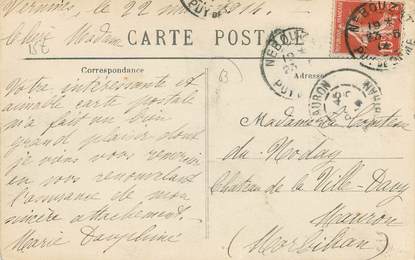 22 mai 1914.
Chère Madame
CARTE POSTALE
NEBOUZAT
PUY-DE-DOME
Correspondance
Adresse
MAURON
Votre intéressante et
aimable carte postale
m'a fait un bien
grand plaisir dont
je viens vous remercier
en vous renouvelant
l'assurance de mon
sincère attachement.
Marie Dauphine
Madame la Comtesse
du Noday
Château de la Ville-Davy
Mauron
(Morbihan)